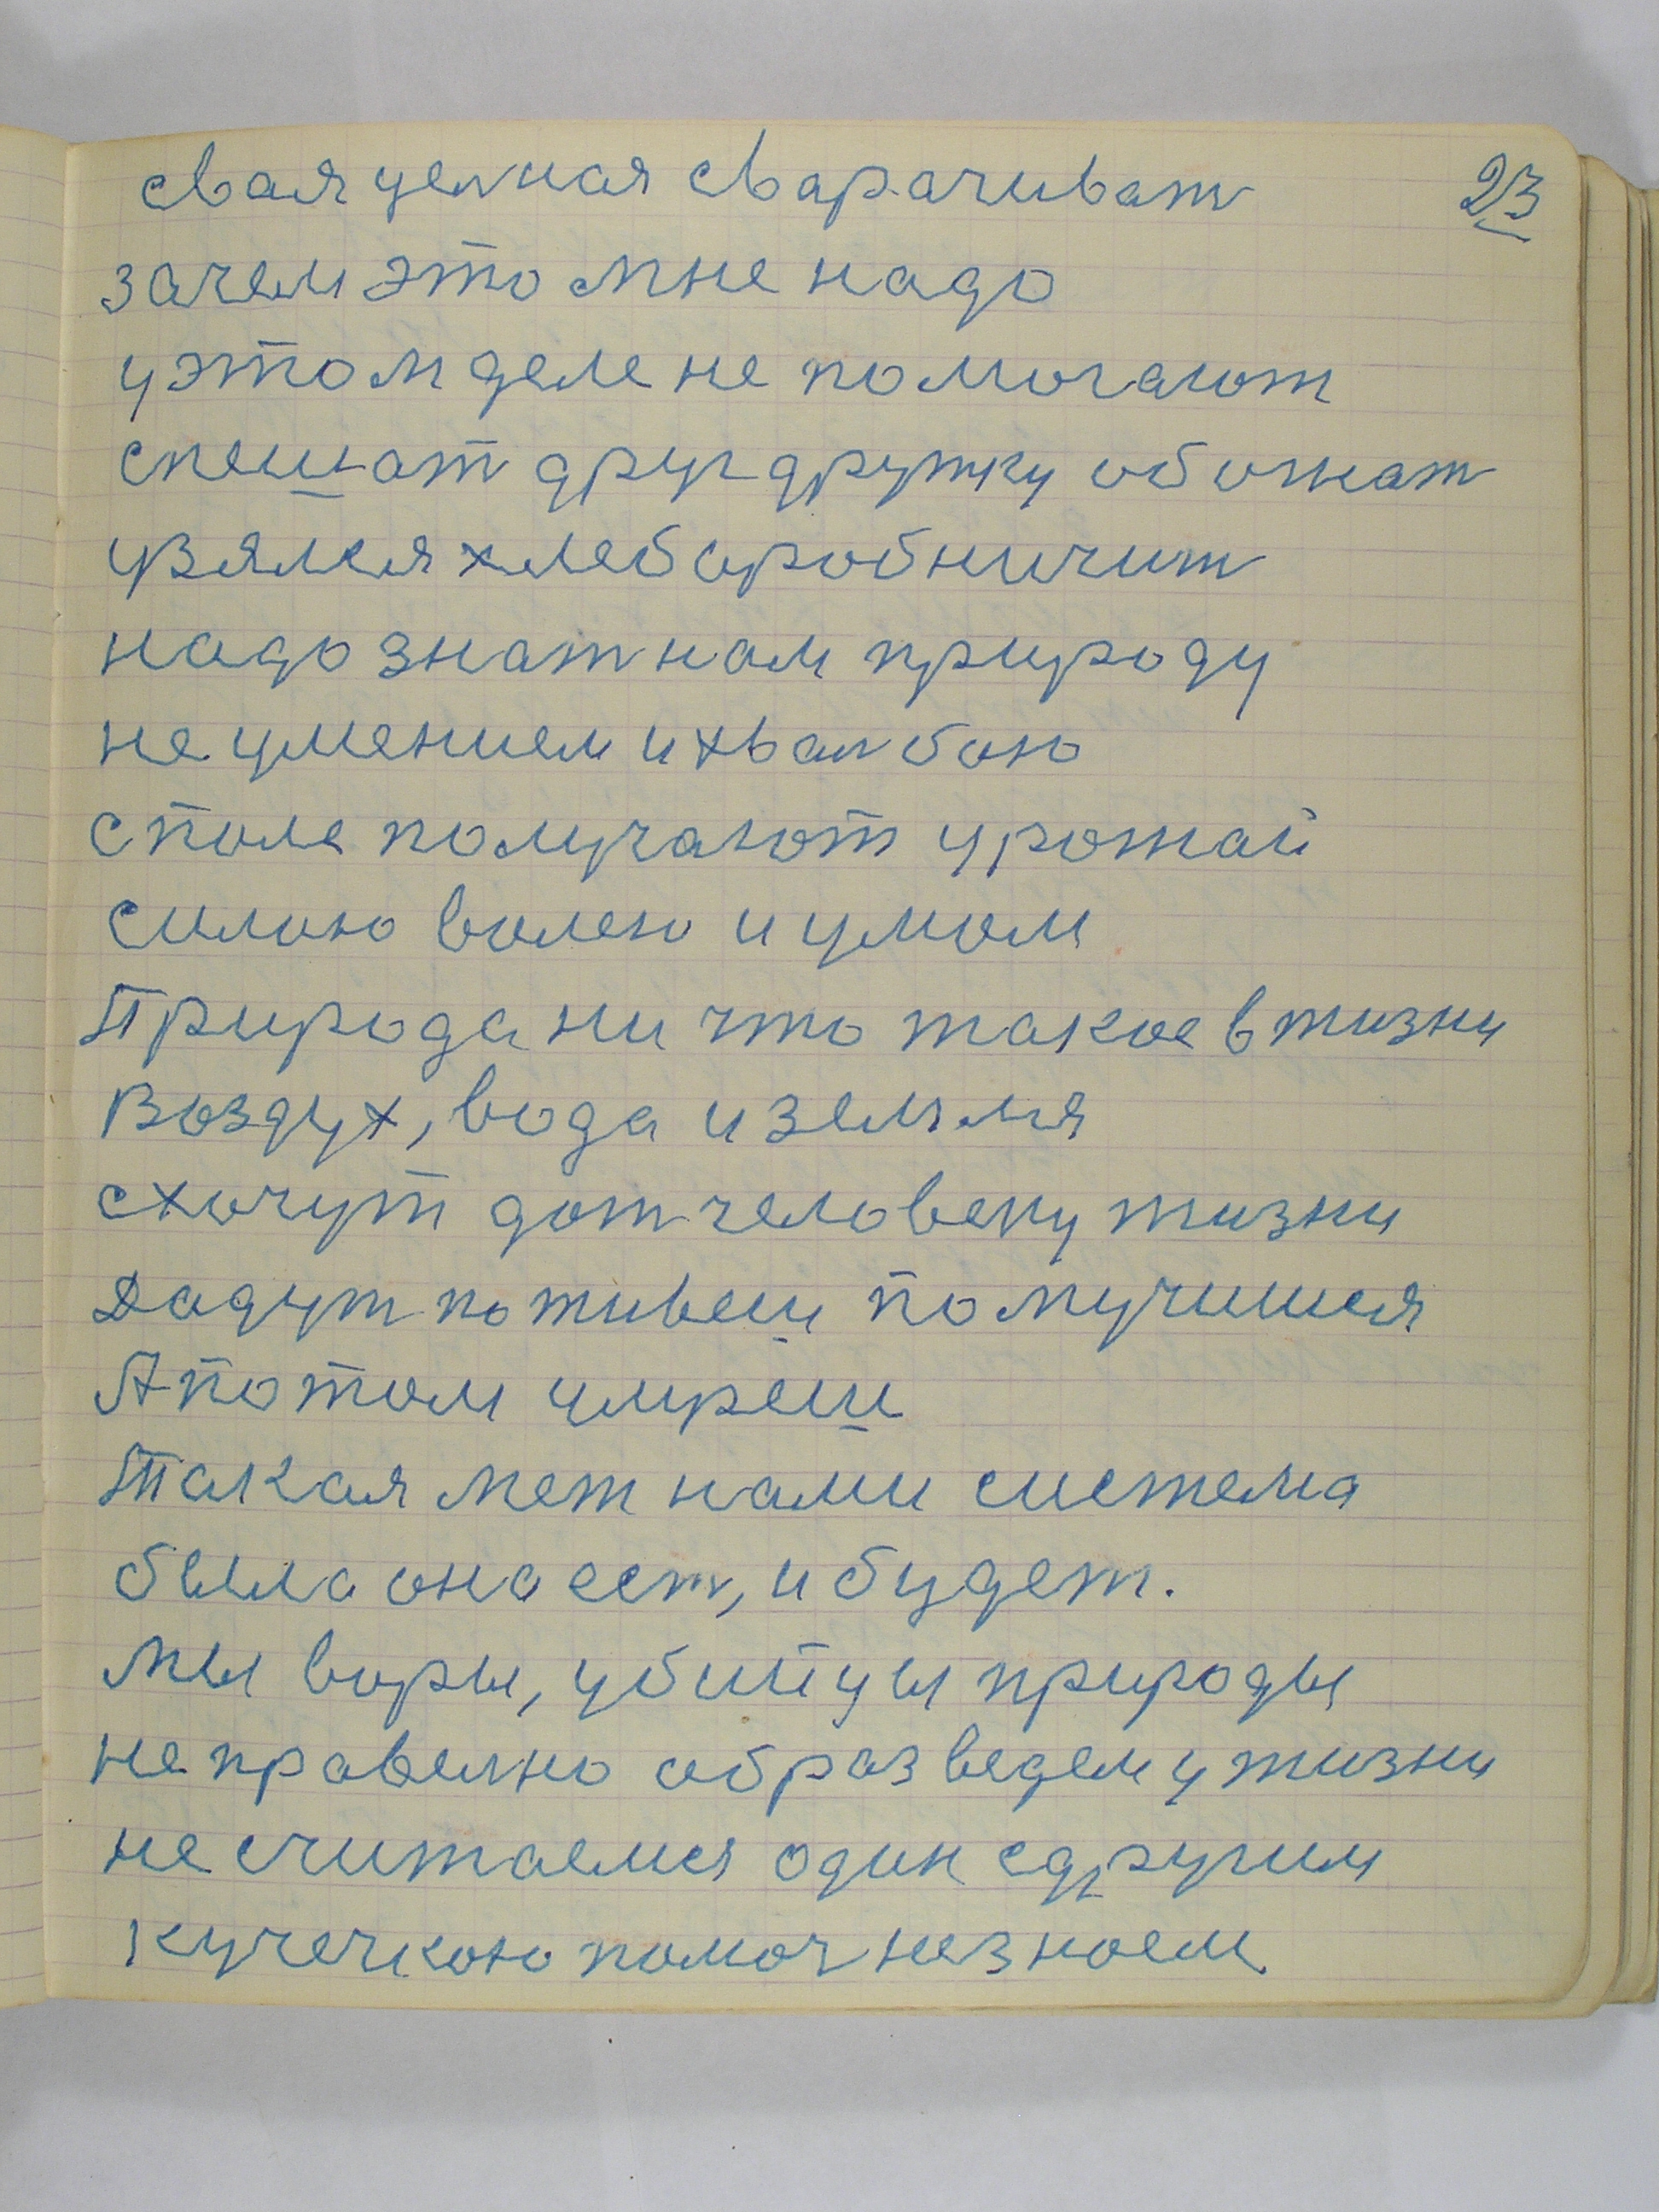 23
сваяцелная сварачиват
зачем это мне надо
у этом деле не помогают
спешат друг дружку обежат
узялся хлеборобничит
надо знат нам природу
не умением и хвалбою
споле получают урожай
силою волею и умом
Природа ни что такое в жизни
Воздух, вода и земля
схочут дат человеку жизни
Дадут поживеш помучишся
А потом умреш
Такая меж нами система
была она ест, и будет.
Мы воры, убийцы природы
не правелно образ ведем у жизни
не считаемся один с другим
кучечкою помоч не знаем